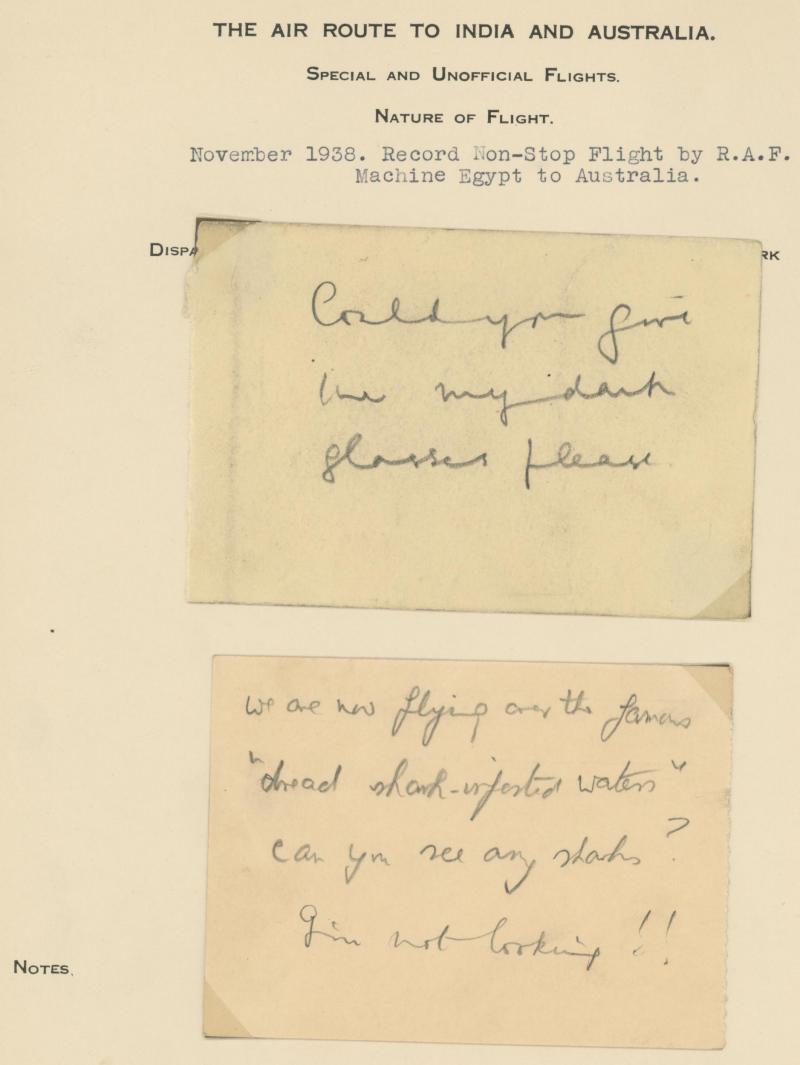 THE AIR ROUTE TO INDIA AND AUSTRALIA.
SPECIAL AND UNOFFICIAL FLIGHTS.
NATURE OF FLIGHT.
November 1938. Record Non-Stop Flight by R.A.F.
Machine Egypt to Australia.
DISPA
RK
Could you give
me my dark
glasses please
We are now flying over the famous
"dread shark-infested waters"
can you see any sharks?
I'm not looking!!
NOTES.